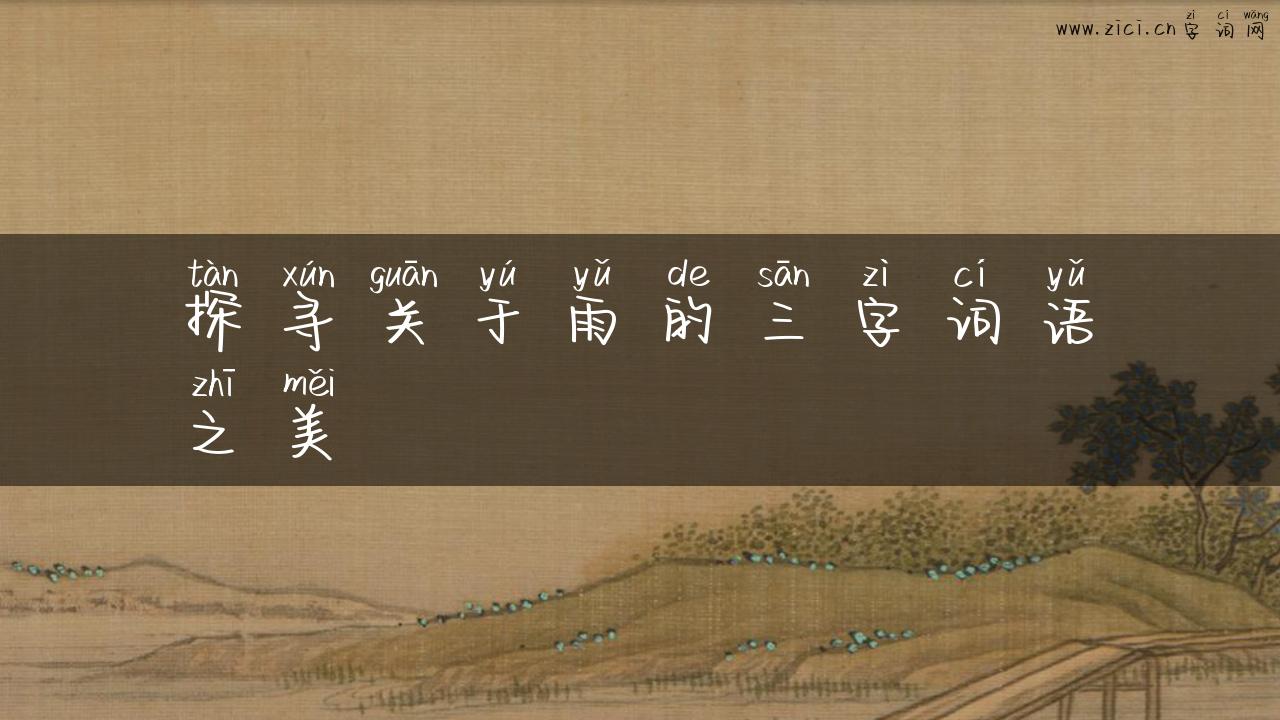 zì cí wǎng
www.zici.cn字词网
tàn xún guān yú yǔ de sān zì cí yǔ
探寻关于雨的三字词语
zhī měi
之美